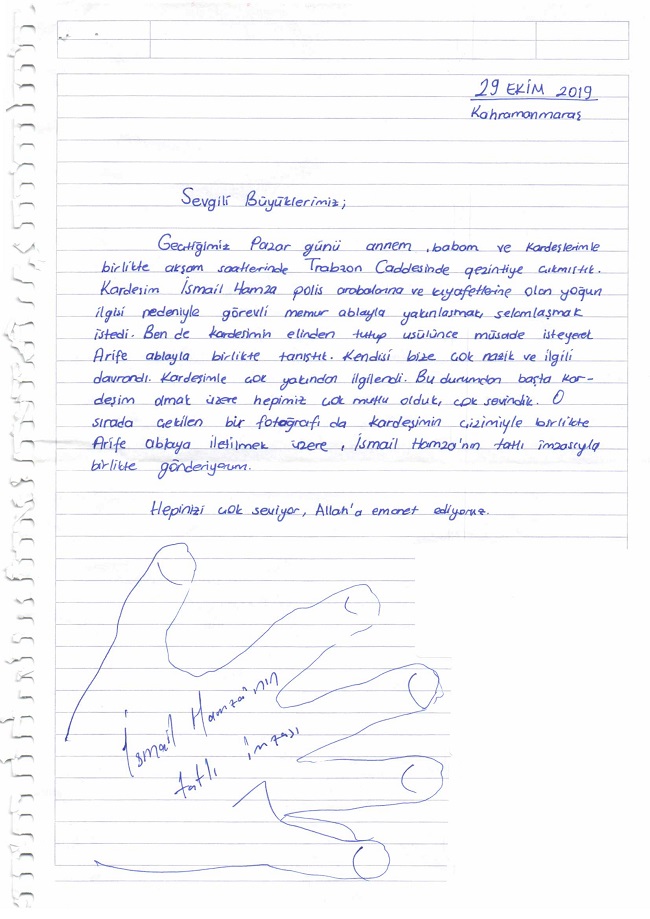 29 EKİM 2019
Kahramanmaraş
Sevgili Büyüklerimiz;
Geçtiğimiz Pazar günü annem, babam ve kardeşlerimle
birlikte akşam saatlerinde Trabzon Caddesinde gezintiye çıkmıştık.
Kardeşim İsmail Hamza polis arabalarına ve kıyafetlerine olan yoğun
ilgisi nedeniyle görevli memur ablayla yakınlaşmak, selamlaşmak
istedi. Ben de kardeşimin elinden tutup usülünce müsade isteyerek
Arife ablayla birlikte tanıştık. Kendisi bize çok nazik ve ilgili
davrandı. Kardeşimle çok yakından ilgilendi. Bu durumdan başta kar-
deşim olmak üzere hepimiz çok mutlu olduk, çok sevindik. O
sırada çekilen bir fotoğrafı da kardeşimin çizimiyle birlikte
Arife ablaya iletilmek üzere, İsmail Hamza'nın tatlı imzasıyla
birlikte gönderiyorum.
Hepinizi çok seviyor, Allah'a emanet ediyoruz.
İsmail Hamza'nın
tatlı imzası